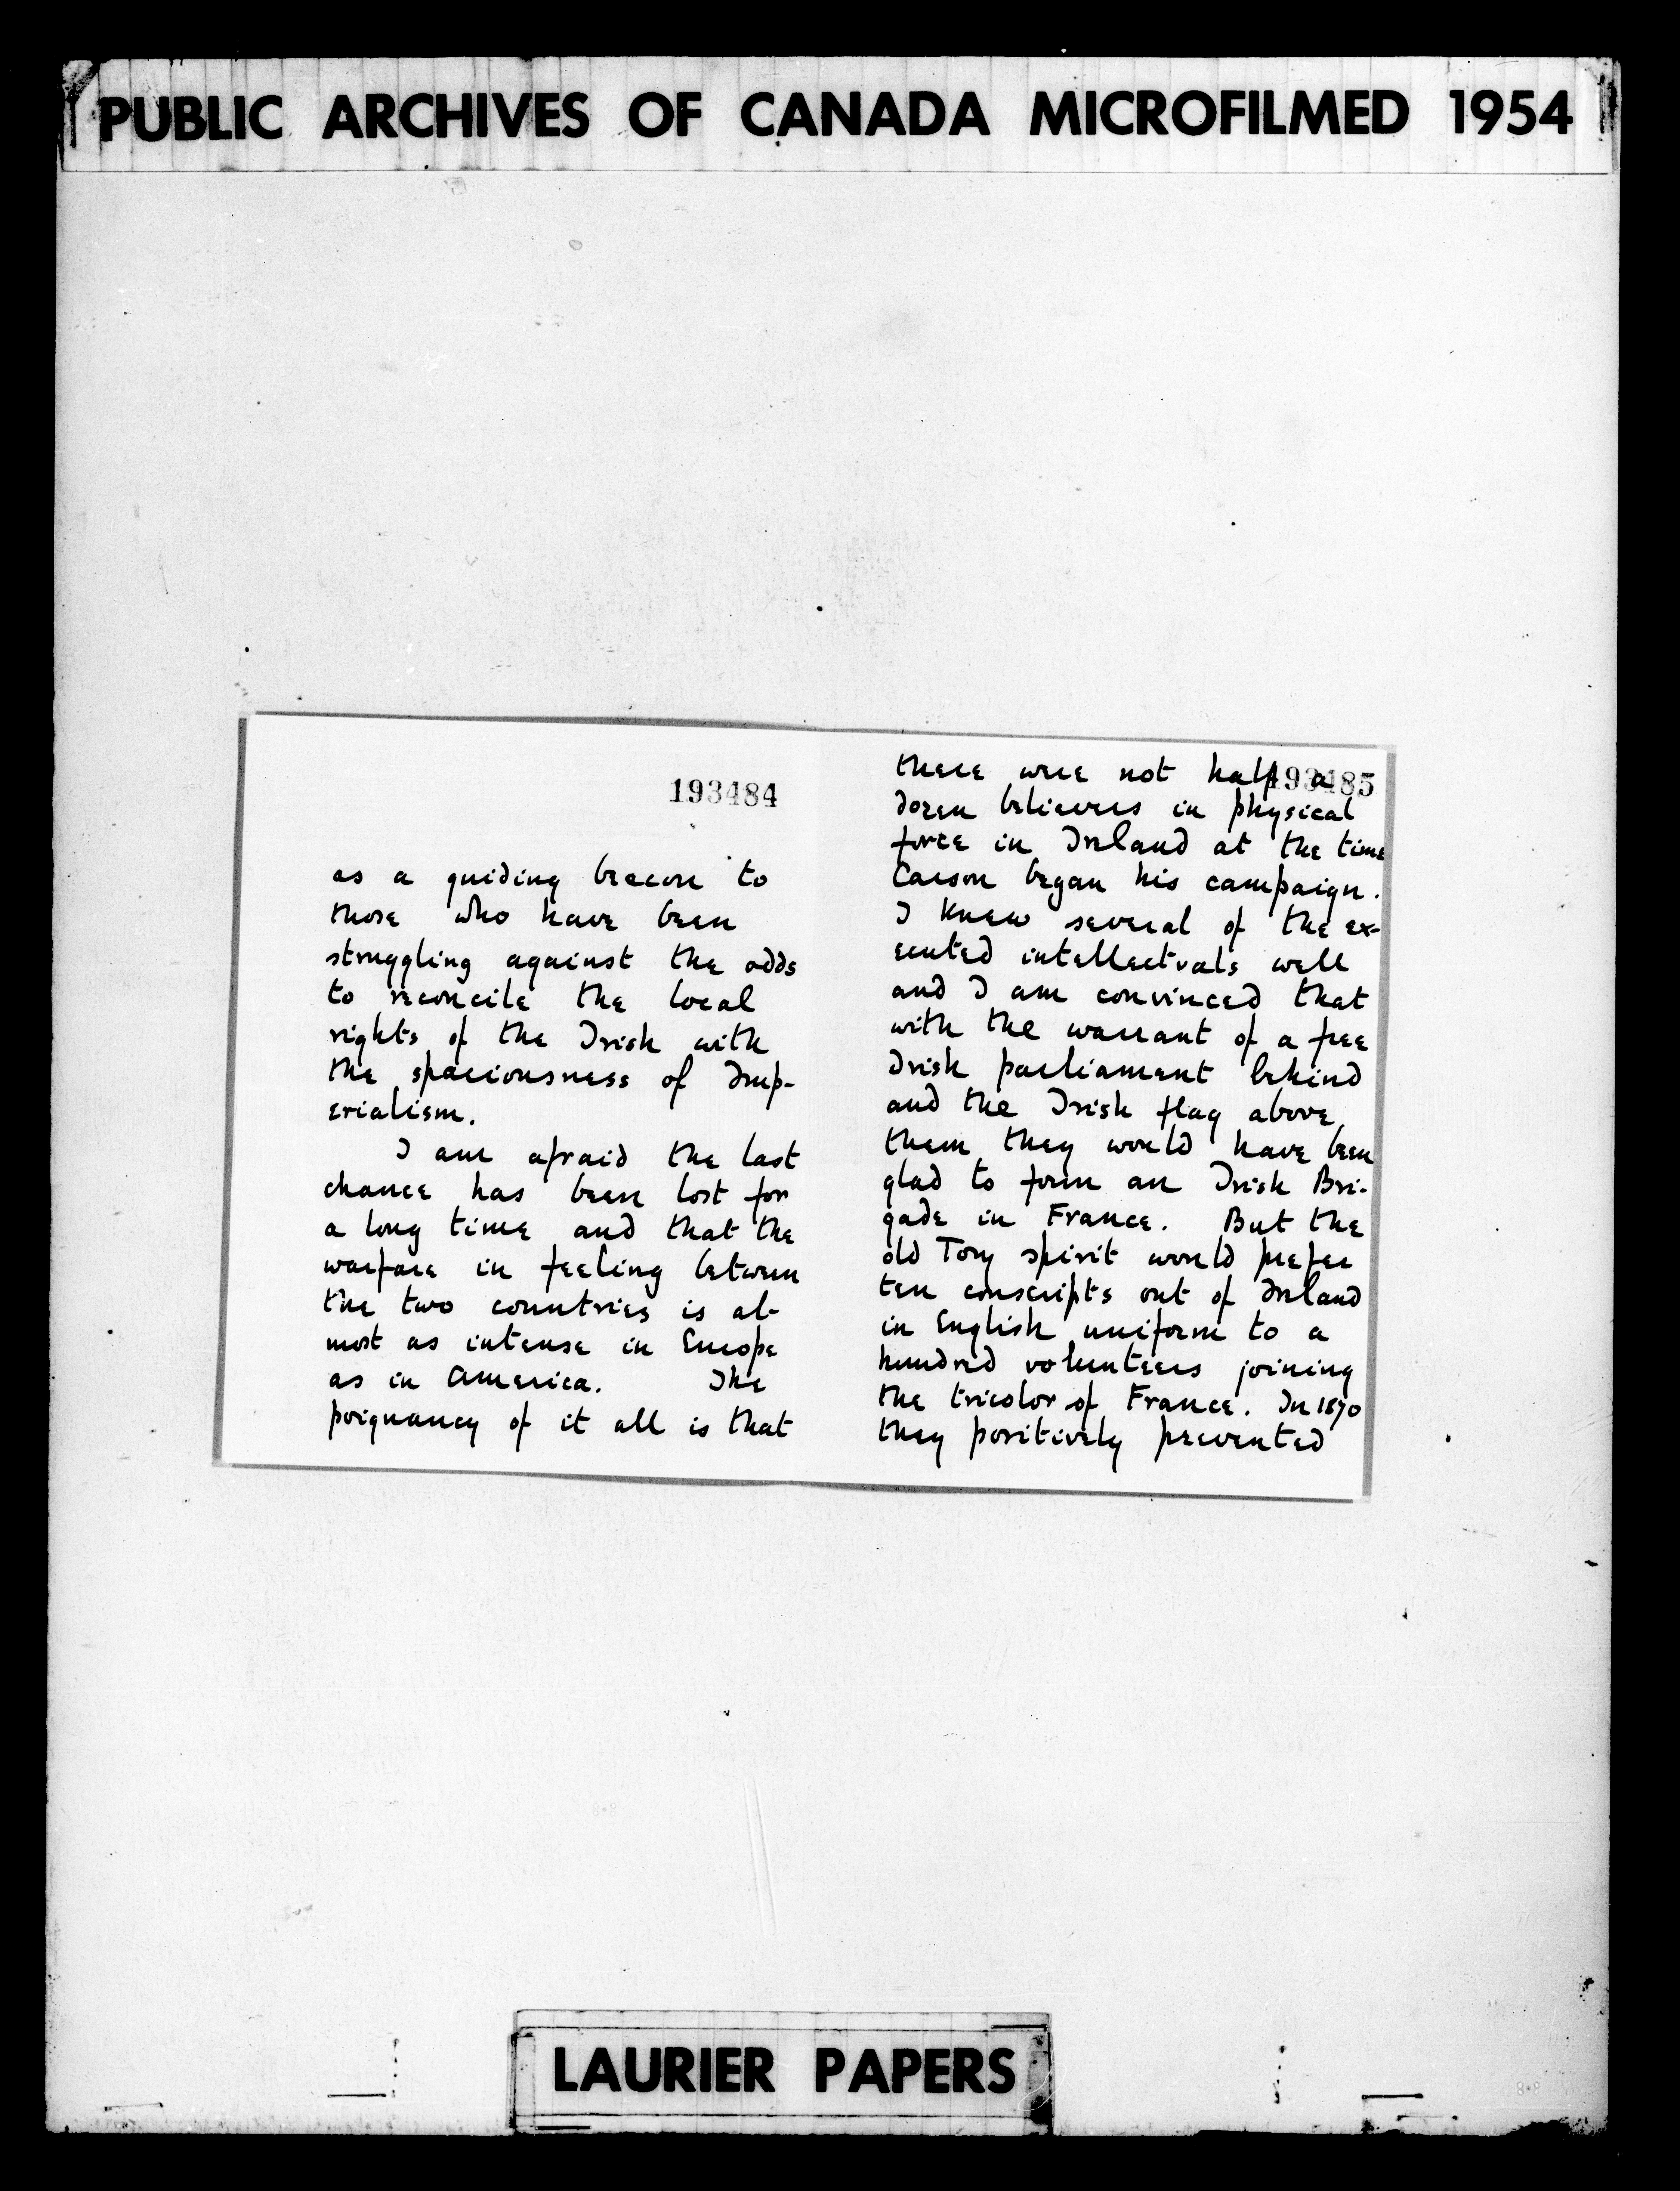 PUBLIC ARCHIVES OF CANADA MICROFILMED 1954
193484
as a guiding beacon to
those who have been
struggling against the odds
to reconcile the local
rights of the Irish with
the spaciousness of Imp-
erialism.
I am afraid the last
chance has been lost for
a long time and that the
warfare in feeling between
the two countries is al-
most as intense in Europe
as in America. The
poignancy of it all is that
193485
there were not half a
dozen believers in physical
force in Ireland at the time
Carson began his campaign.
I knew several of the ex-
ecuted intellectuals well
and I am convinced that
with the warrant of a free
Irish parliament behind
and the Irish flag above
them they would have been
glad to form an Irish Bri-
gade in France. But the
old Tory spirit would prefer
ten conscripts out of Ireland
in English uniform to a
hundred volunteers joining
the tricolor of France. In 1870
they positively prevented
LAURIER PAPERS